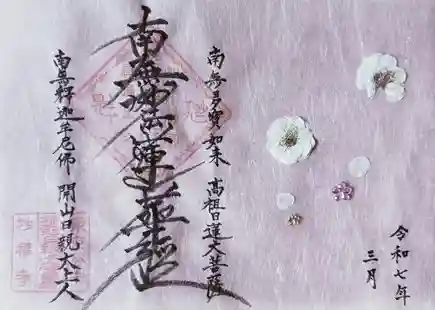 令和七年
三月
南無多寳如来 高祖日蓮大菩薩
南無妙法蓮華経
南無釋迦牟尼佛 開山日親大上人